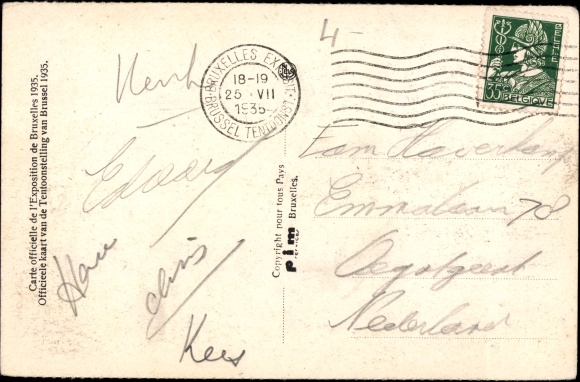 Carte officielle de l'Exposition de Bruxelles 1935.
Officieele kaart van de Tentoonstelling van Brussel 1935.
4-
BRUXELLES EXPOSIT.
18-19
25 · VII
1935
BRUSSEL TENTOONST.
BELGIE
35c
BELGIQUE
Edward
Hans
chris
Kees
Copyright pour tous Pays
pim
Bruxelles.
Fam Haverkamp
Emmalaan 78
Oegstgeest
Nederland